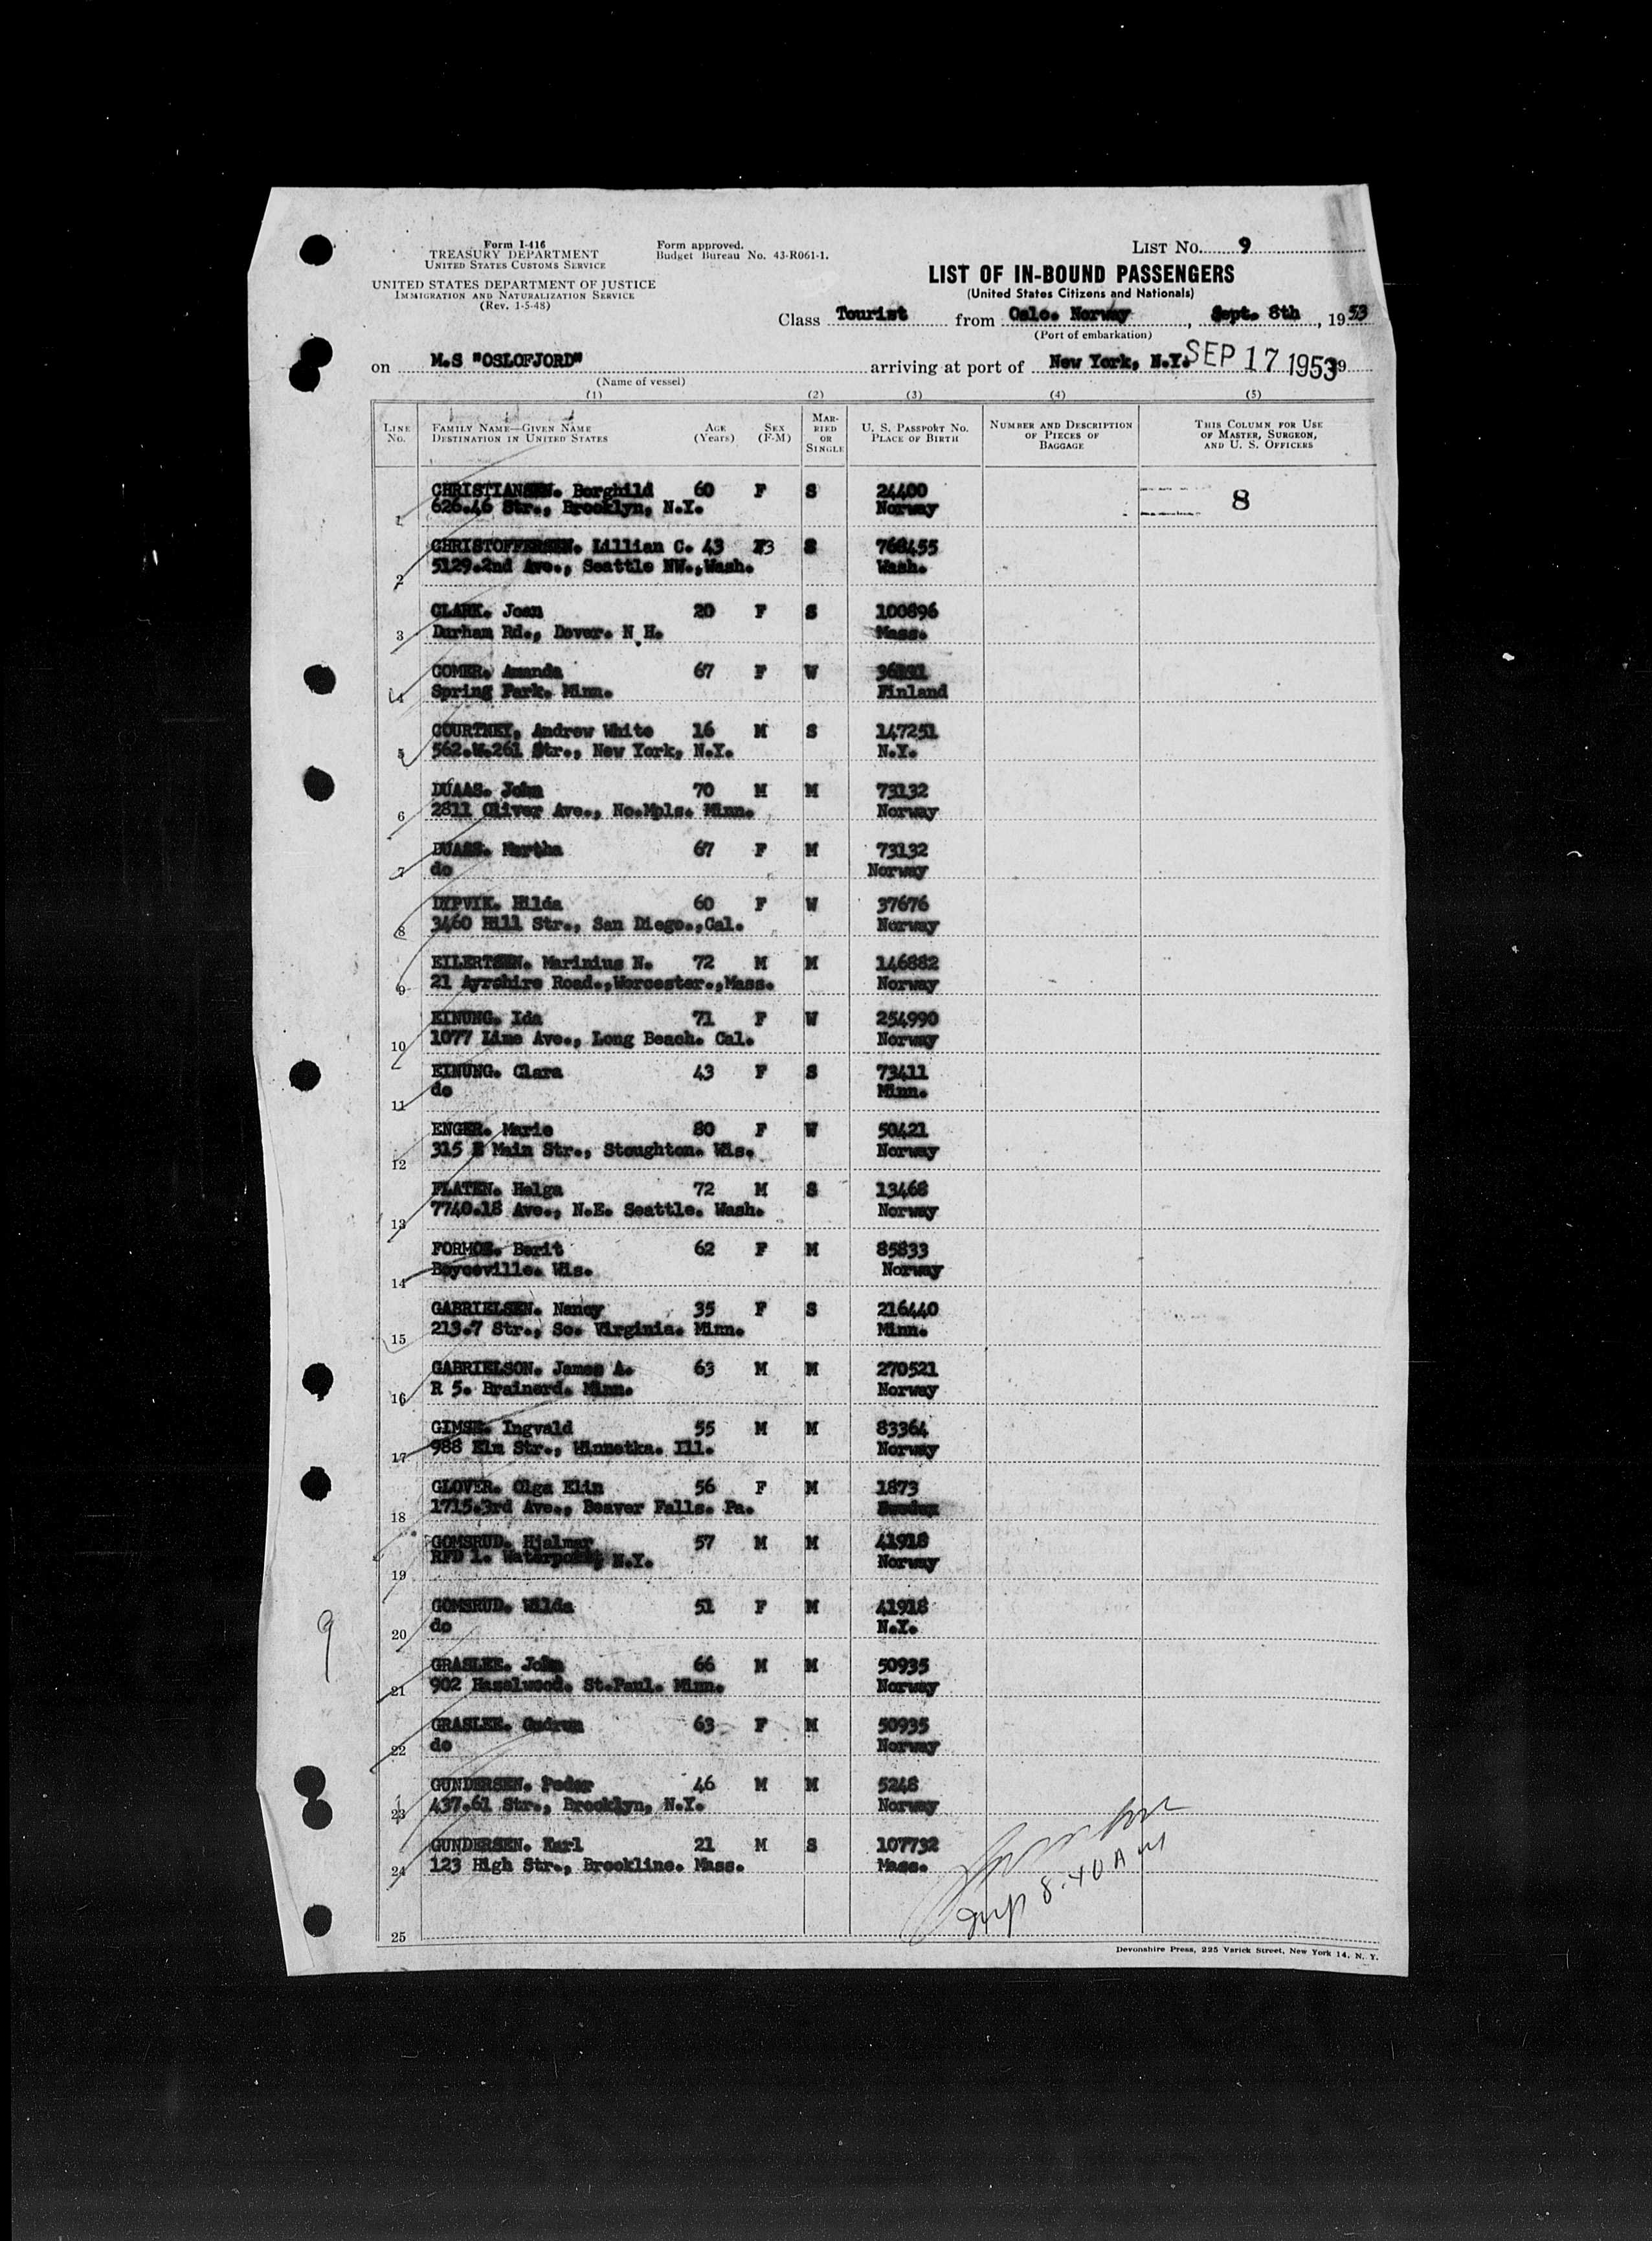 Form I-416
TREASURY DEPARTMENT
UNITED STATES CUSTOMS SERVICE
UNITED STATES DEPARTMENT OF JUSTICE
IMMIGRATION AND NATURALIZATION SERVICE
(Rev. 1-5-48)
Form approved.
Budget Bureau No. 43-R061-1.
LIST No. 9
LIST OF IN-BOUND PASSENGERS
(United States Citizens and Nationals)
Class Tourist from Oslo. Norway, Sept. 8th, 1953
(Port of embarkation)
on M.S "OSLOFJORD" arriving at port of New York, N.Y. SEP 17 1953 19
(Name of vessel)
(1) (2) (3) (4) (5)
LINE No. FAMILY NAME—GIVEN NAME DESTINATION IN UNITED STATES AGE (Years) SEX (F-M) MARRIED OR SINGLE U. S. PASSPORT No. PLACE OF BIRTH NUMBER AND DESCRIPTION OF PIECES OF BAGGAGE THIS COLUMN FOR USE OF MASTER, SURGEON, AND U. S. OFFICERS
CHRISTIANSEN. Borghild 60 F S 24400 8
1 626.46 Str., Brooklyn, N.Y. Norway
CHRISTOFFERSEN. Lillian C. 43 F3 S 768455
2 5129.2nd Ave., Seattle NW.,Wash. Wash.
CLARK. Joan 20 F S 100896
3 Durham Rd., Dover. N H. Mass.
COMER. Amanda 67 F W
4 Spring Park. Minn. Finland
COURTNEY, Andrew White 16 M S 147251
5 562.W.261 Str., New York, N.Y. N.Y.
DUAAS. John 70 M M 73132
6 2811 Oliver Ave., No.Mpls. Minn. Norway
DUAAS. Martha 67 F M 73132
7 do Norway
DYPVIK. Hilda 60 F W 37676
8 3460 Hill Str., San Diego.,Cal. Norway
EILERTSEN. Marinius N. 72 M M 146882
9 21 Ayrshire Road.,Worcester.,Mass. Norway
EINUNG. Ida 71 F W 254990
10 1077 Lime Ave., Long Beach. Cal. Norway
EINUNG. Clara 43 F S 73411
11 do Minn.
ENGER. Marie 80 F W 50421
12 315 E Main Str., Stoughton. Wis. Norway
FLATEN. Helga 72 M S 13468
13 7740.18 Ave., N.E. Seattle. Wash. Norway
FORMOE. Berit 62 F M 85833
14 Boyceville. Wis. Norway
GABRIELSEN. Nancy 35 F S 216440
15 213.7 Str., So. Virginia. Minn. Minn.
GABRIELSON. James A. 63 M M 270521
16 R 5. Brainerd. Minn. Norway
GIMSE. Ingvald 55 M M 83364
17 988 Elm Str., Winnetka. Ill. Norway
GLOVER. Olga Elin 56 F M 1873
18 1715.3rd Ave., Beaver Falls. Pa. Sweden
GOMSRUD. Hjalmar 57 M M 41918
19 RFD 1. N.Y. Norway
GOMSRUD. Wilda 51 F M 41918
20 do N.Y.
GRASLEE. John 66 M M 50935
21 902 Hazelwood. St.Paul. Minn. Norway
GRASLEE. Gudrun 63 F M 50935
22 do Norway
GUNDERSEN. Peder 46 M M 5248
23 437.61 Str., Brooklyn, N.Y. Norway
GUNDERSEN. Karl 21 M S 107732
24 123 High Str., Brookline. Mass. Mass.
8.40 AM
25
9
Devonshire Press, 225 Varick Street, New York 14, N. Y.